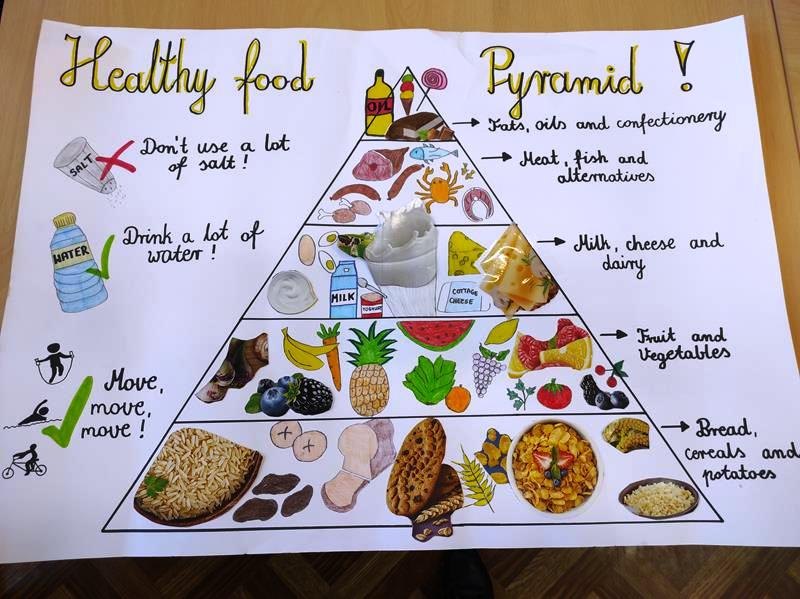 Healthy food Pyramid !
Don't use a lot
of salt !
SALT
Drink a lot of
water !
WATER
Move,
move,
move !
OIL
Fats, oils and confectionery
Meat, fish and
alternatives
Milk, cheese and
dairy
MILK
YOGHURT
COTTAGE
CHEESE
Fruit and
Vegetables
Bread,
cereals and
potatoes